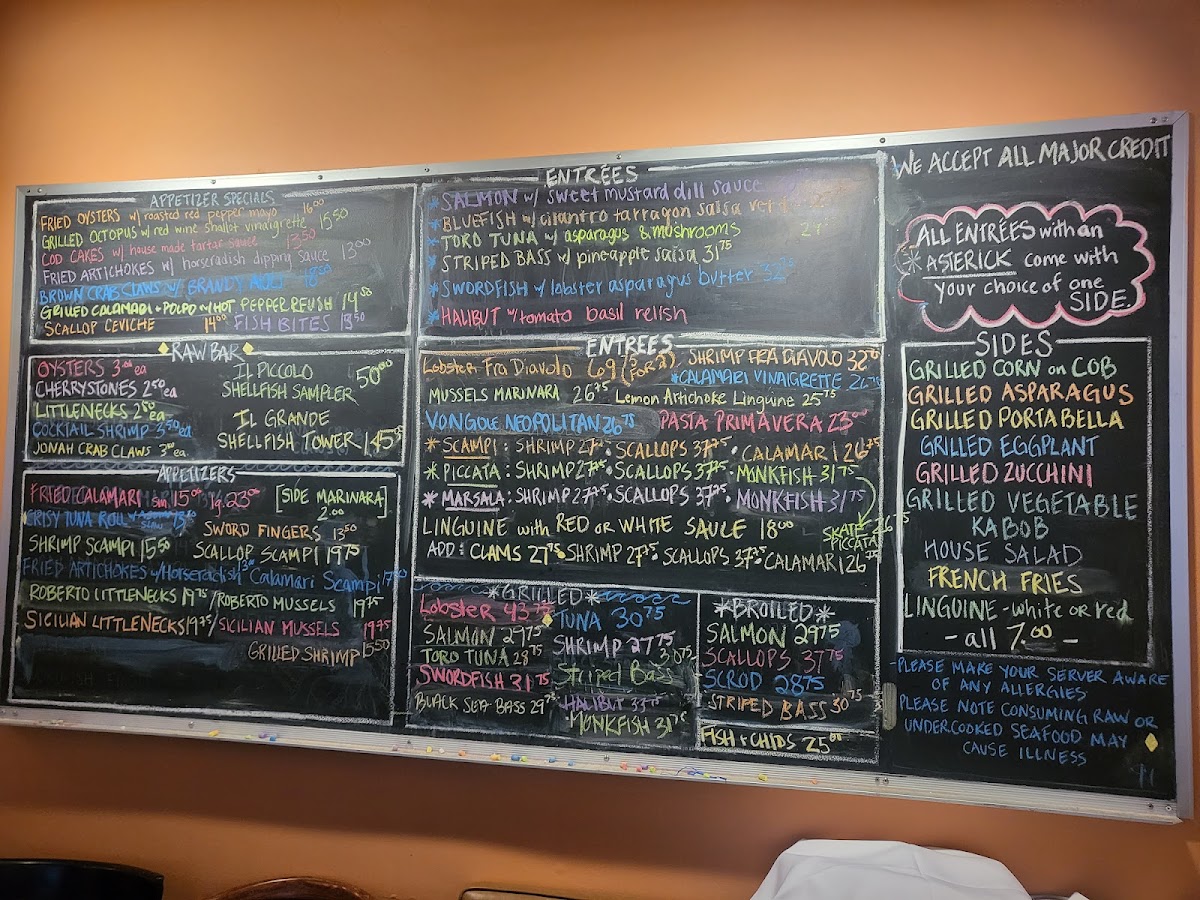 APPETIZER SPECIALS
FRIED OYSTERS w/ roasted red pepper mayo 16.00
GRILLED OCTOPUS w/ red wine shallot vinaigrette 15.50
COD CAKES w/ house made tartar sauce 13.50
FRIED ARTICHOKES w/ horseradish dipping sauce 13.00
BROWN CRAB CLAWS w/ BRANDY AIOLI 18.50
GRILLED CALAMARI + POLPO w/ HOT PEPPER RELISH 14.50
SCALLOP CEVICHE 14.00 FISH BITES 13.50
RAW BAR
OYSTERS 3.00 ea
CHERRYSTONES 2.50 ea
LITTLENECKS 2.50 ea
COCKTAIL SHRIMP 3.50 ea
JONAH CRAB CLAWS 3.00 ea
IL PICCOLO
SHELLFISH SAMPLER 50.00
IL GRANDE
SHELLFISH TOWER 145.00
APPETIZERS
FRIED CALAMARI Sm. 15.00 lg. 23.00 [SIDE MARINARA]
2.00
CRISY TUNA ROLL SWORD FINGERS 13.50
SHRIMP SCAMPI 15.50 SCALLOP SCAMPI 19.75
FRIED ARTICHOKES w/Horseradish 13.00 Calamari Scampi
ROBERTO LITTLENECKS 19.75 / ROBERTO MUSSELS 19.75
SICILIAN LITTLENECKS 19.75 / SICILIAN MUSSELS 19.75
GRILLED SHRIMP 15.50
ENTRÉES
*SALMON w/ sweet mustard dill sauce
*BLUEFISH w/ cilantro tarragon salsa verde
*TORO TUNA w/ asparagus & mushrooms
*STRIPED BASS w/ pineapple salsa 31.75
*SWORDFISH w/ lobster asparagus butter 32.75
*HALIBUT w/ tomato basil relish
ENTREES
Lobster Fra Diavolo 69 (FOR 2) SHRIMP FRA DIAVOLO 32.00
*CALAMARI VINAIGRETTE 26.75
MUSSELS MARINARA 26.75 Lemon Artichoke Linguine 25.75
VONGOLE NEOPOLITAN 26.75 PASTA PRIMAVERA 23.00
*SCAMPI: SHRIMP 27.75 • SCALLOPS 37.75 • CALAMARI 26.75
*PICCATA: SHRIMP 27.75 • SCALLOPS 37.75 • MONKFISH 31.75
*MARSALA: SHRIMP 27.75 • SCALLOPS 37.75 • MONKFISH 31.75
SKATE 26.75
PICCATA
LINGUINE with RED or WHITE SAUCE 18.00
ADD: CLAMS 27.75 • SHRIMP 27.75 • SCALLOPS 37.75 • CALAMARI 26.75
*GRILLED*
Lobster 43.75
SALMON 29.75
TORO TUNA 28.75
SWORDFISH 31.75
BLACK SEA BASS 29.75
TUNA 30.75
SHRIMP 27.75
Striped Bass 30.75
HALIBUT 33.75
MONKFISH 31.75
*BROILED*
SALMON 29.75
SCALLOPS 37.75
SCROD 28.75
STRIPED BASS 30.75
FISH + CHIPS 25.00
WE ACCEPT ALL MAJOR CREDIT
ALL ENTRÉES with an
* ASTERICK come with
your choice of one
SIDE.
SIDES
GRILLED CORN on COB
GRILLED ASPARAGUS
GRILLED PORTABELLA
GRILLED EGGPLANT
GRILLED ZUCCHINI
GRILLED VEGETABLE
KABOB
HOUSE SALAD
FRENCH FRIES
LINGUINE - white or red
- all 7.00 -
-PLEASE MAKE YOUR SERVER AWARE
OF ANY ALLERGIES
PLEASE NOTE CONSUMING RAW OR
UNDERCOOKED SEAFOOD MAY
CAUSE ILLNESS